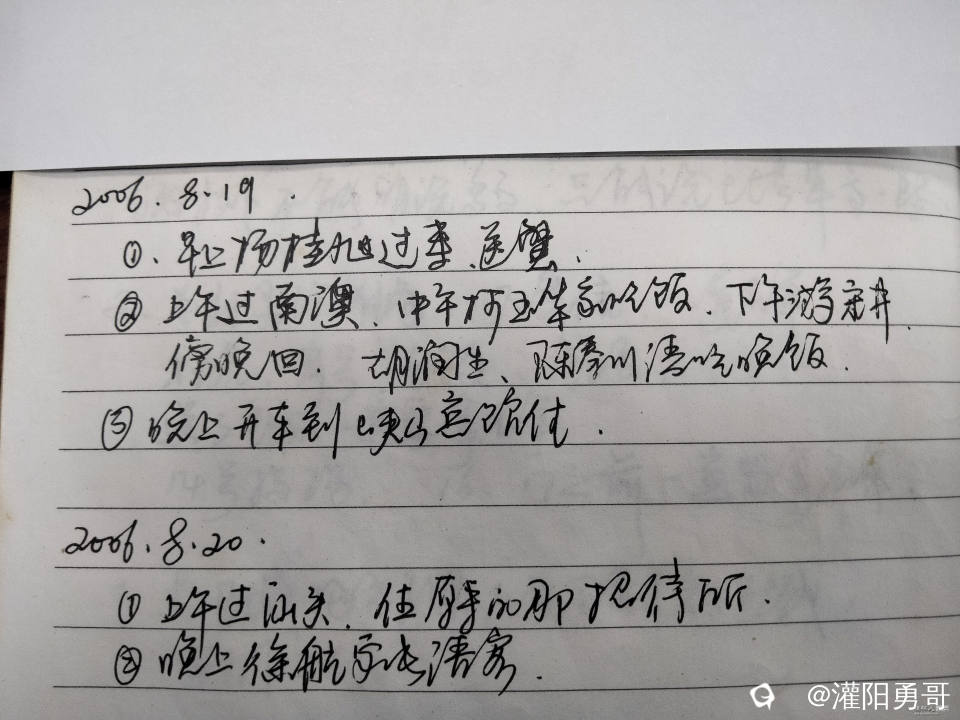 2006.8.19.
①、早上杨桂旭过来送蟹.
② 上午过南澳、中午何玉华家吃饭、下午游宋井.
傍晚回. 胡润生、陈奉川请吃晚饭.
③ 晚上开车到峡山宾馆住.
2006.8.20.
① 上午过汕头、住原的招待所.
② 晚上徐航家长请客.
@灌阳勇哥